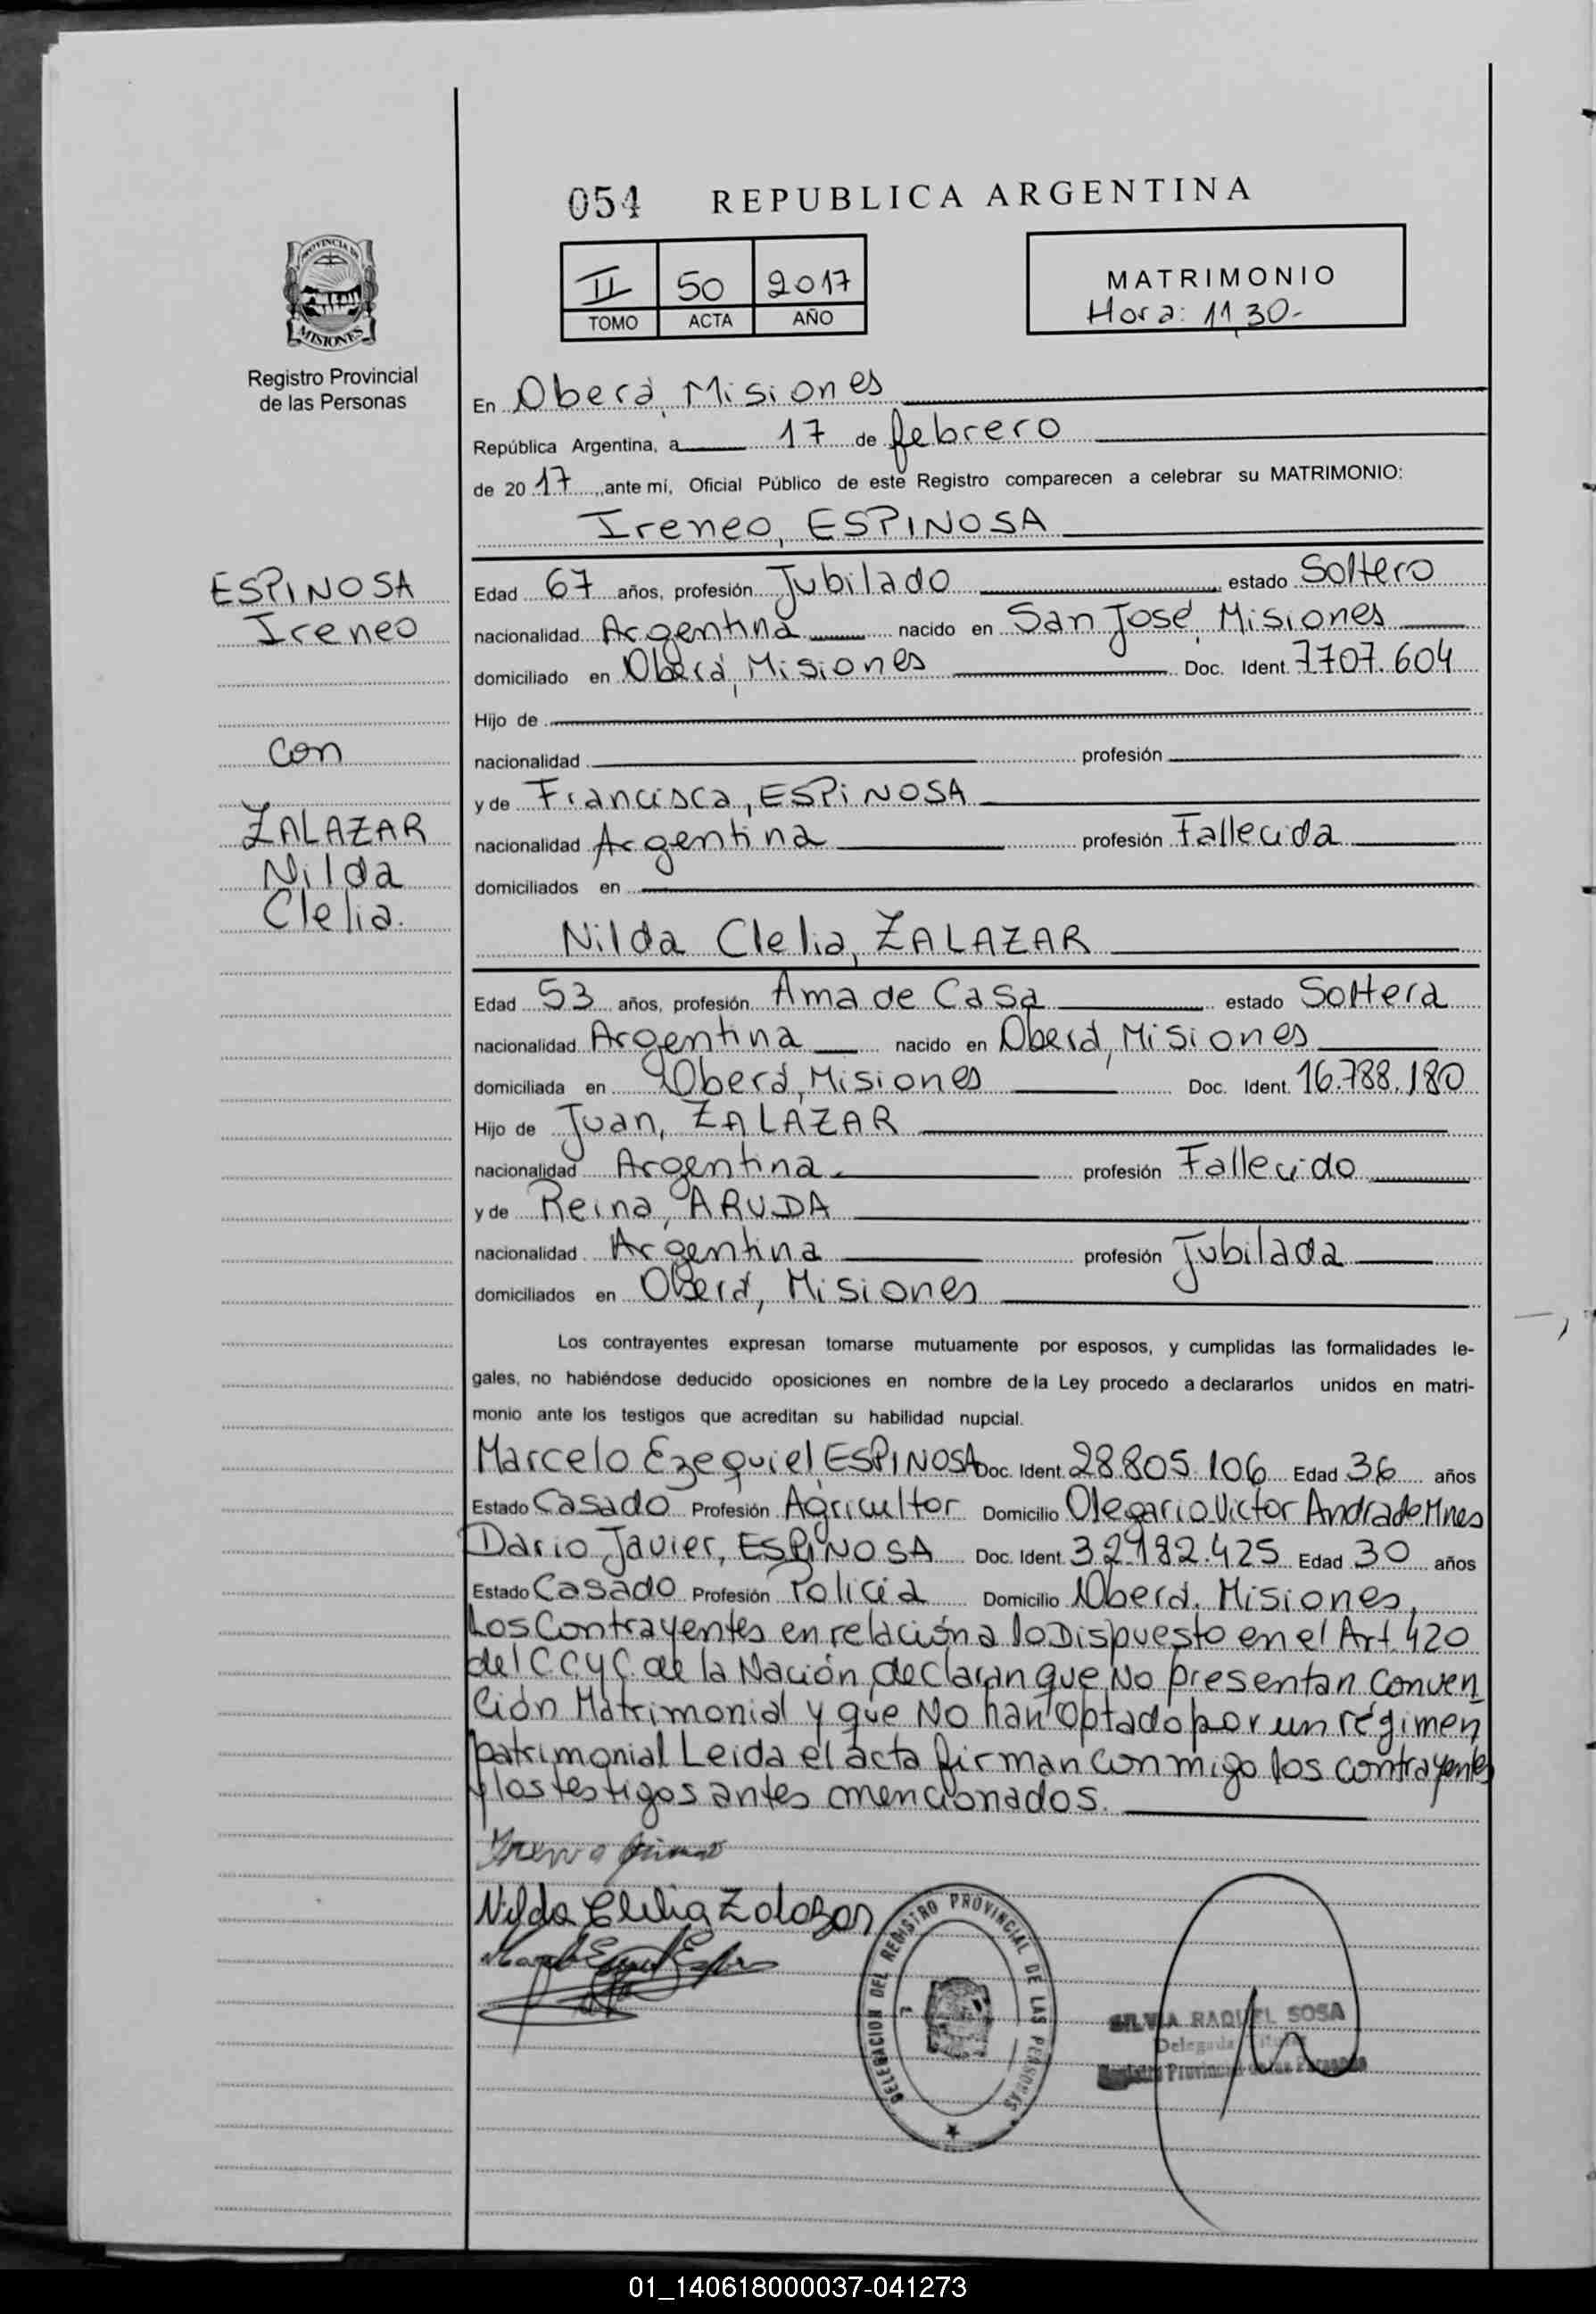 054 REPUBLICA ARGENTINA
PROVINCIA DE
MISIONES
Registro Provincial
de las Personas
II 50 2017
TOMO ACTA AÑO
MATRIMONIO
Hora: 11,30-
En Oberá, Misiones
República Argentina, a 17 de febrero
de 20 17, ante mí, Oficial Público de este Registro comparecen a celebrar su MATRIMONIO:
Ireneo, ESPINOSA
ESPINOSA
Ireneo
con
ZALAZAR
Nilda
Clelia.
Edad 67 años, profesión Jubilado estado Soltero
nacionalidad Argentina nacido en San José, Misiones
domiciliado en Oberá, Misiones Doc. Ident. 7707.604
Hijo de
nacionalidad profesión
y de Francisca, ESPINOSA
nacionalidad Argentina profesión Fallecida
domiciliados en
Nilda Clelia, ZALAZAR
Edad 53 años, profesión Ama de Casa estado Soltera
nacionalidad Argentina nacido en Oberá, Misiones
domiciliada en Oberá, Misiones Doc. Ident. 16.788.180
Hijo de Juan, ZALAZAR
nacionalidad Argentina profesión Fallecido
y de Reina, ARUDA
nacionalidad Argentina profesión Jubilada
domiciliados en Oberá, Misiones
Los contrayentes expresan tomarse mutuamente por esposos, y cumplidas las formalidades le-
gales, no habiéndose deducido oposiciones en nombre de la Ley procedo a declararlos unidos en matri-
monio ante los testigos que acreditan su habilidad nupcial.
Marcelo Ezequiel, ESPINOSA Doc. Ident. 28.805.106 Edad 36 años
Estado Casado Profesión Agricultor Domicilio Olegario Victor Andrade Mnes
Dario Javier, ESPINOSA Doc. Ident. 32.982.425 Edad 30 años
Estado Casado Profesión Policía Domicilio Oberá, Misiones,
Los Contrayentes en relación a lo Dispuesto en el Art. 420
del C C y C. de la Nación, declaran que No presentan Conven
ción Matrimonial y que No han optado por un régimen
patrimonial Leida el acta firman conmigo los contrayentes
y los testigos antes mencionados.
Nilda Clelia Zalazar
DELEGACION DEL REGISTRO PROVINCIAL DE LAS PERSONAS
SILVIA RAQUEL SOSA
Delegada
Registro Provincial de las Personas
01_140618000037-041273